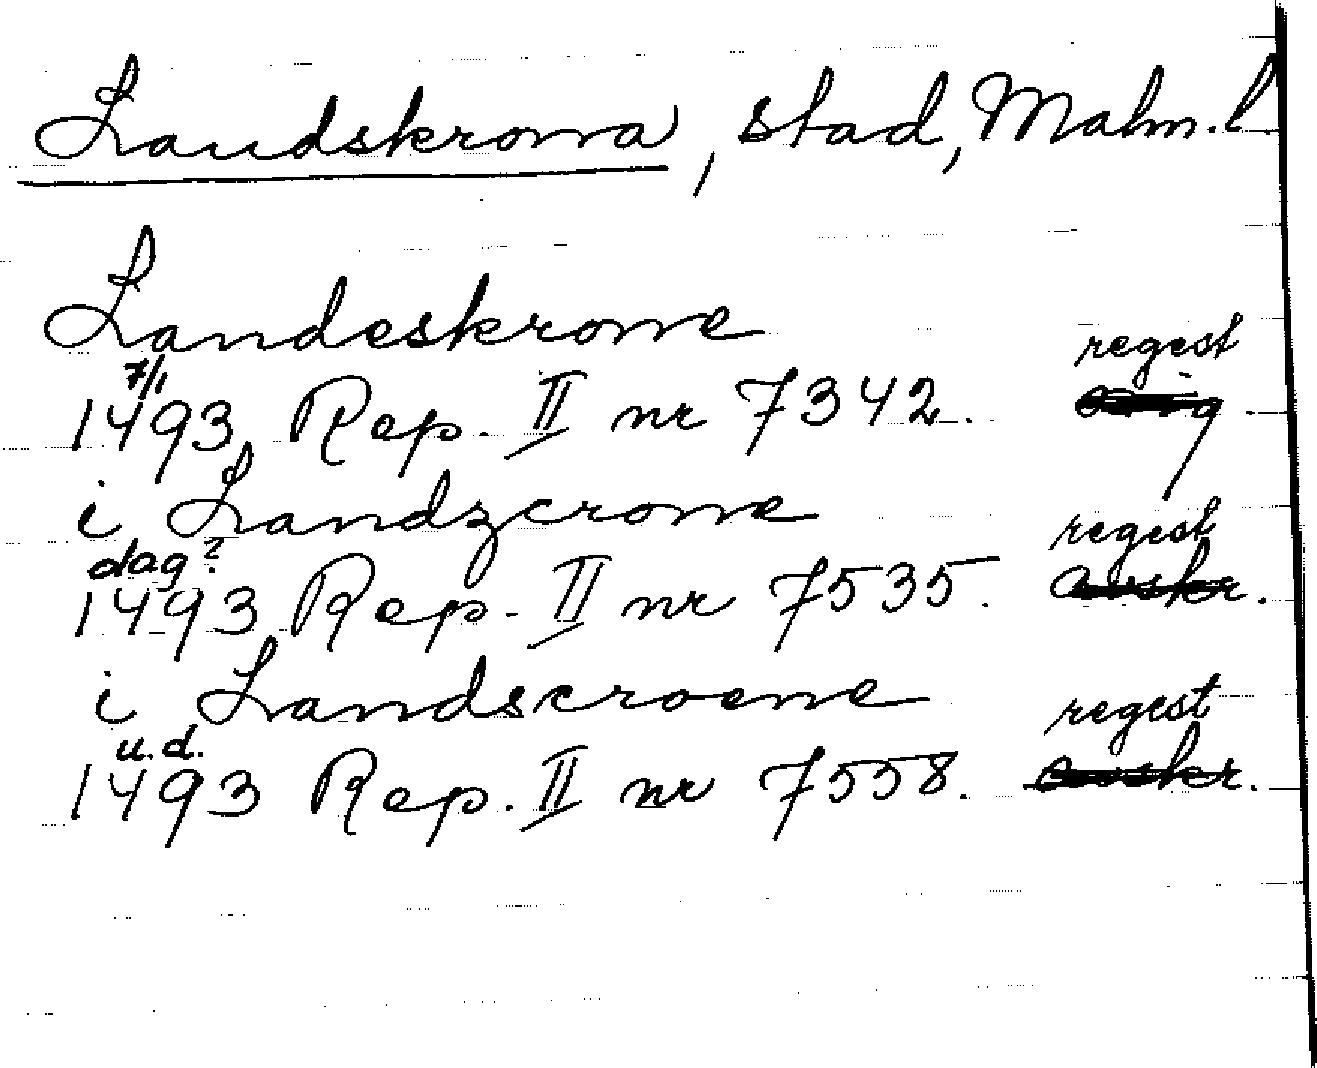 Landskrona, stad, Malm. l
Landeskrone
regest
7/1
1493 Rep. II nr 7342. orig
i Landzcrone
regest
dag?
1493 Rep. II nr 7535. avskr.
i Landscroene
regest
u.d.
1493 Rep. II nr 7558. avskr.